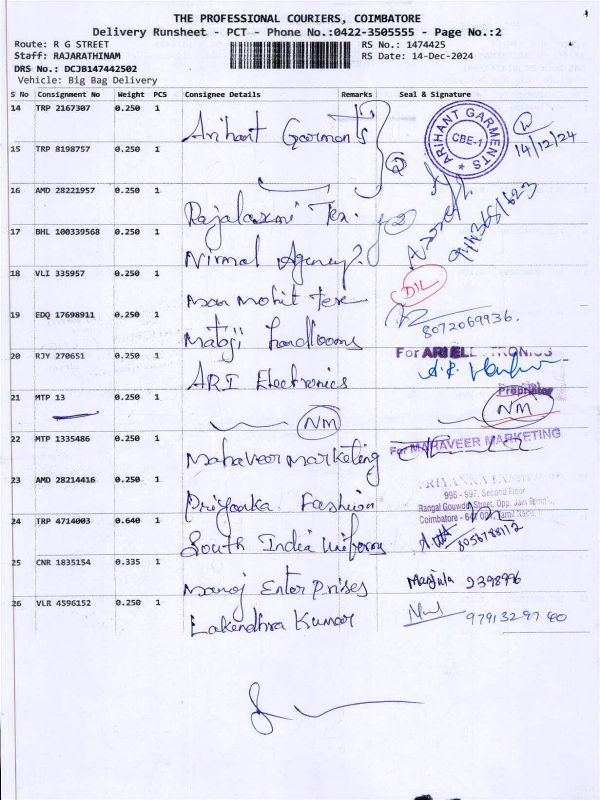 THE PROFESSIONAL COURIERS, COIMBATORE
Delivery Runsheet - PCT - Phone No.:0422-3505555 - Page No.:2
Route: R G STREET RS No.: 1474425
Staff: RAJARATHINAM RS Date: 14-Dec-2024
DRS No.: DCJB147442502
Vehicle: Big Bag Delivery
S No Consignment No Weight PCS Consignee Details Remarks Seal & Signature
14 TRP 2167307 0.250 1 Arihant Garments ARIHANT GARMENTS CBE-1 14/12/24
15 TRP 8198757 0.250 1 2
16 AMD 28221957 0.250 1 Rajalaxmi Tex. 2
17 BHL 100339568 0.250 1 Nirmal Agency
18 VLI 335957 0.250 1 Man Mohit Tex DIL
19 EDQ 17698911 0.250 1 Mataji Handlooms 8072069936.
20 RJY 270651 0.250 1 ARI Electronics For ARI ELECTRONICS
Proprietor
21 MTP 13 0.250 1 NM NM
22 MTP 1335486 0.250 1 Mahaveer Marketing For MAHAVEER MARKETING
23 AMD 28214416 0.250 1 Priyanka Fashion PRIYANKA FASHION
996 - 997, Second Floor
Rangai Gouwder Street, Opp. Jain Temple,
Coimbatore - 641 001 Tamil Nadu
24 TRP 4714003 0.640 1 South India Uniforms 8056788112
25 CNR 1835154 0.335 1 Manoj Enterprises Manjula 2398996
26 VLR 4596152 0.250 1 Lakendhra Kumar 9791329740